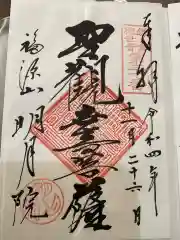 奉拝
令和四年
十一月二十六日
聖観世音菩薩
福源山
明月院